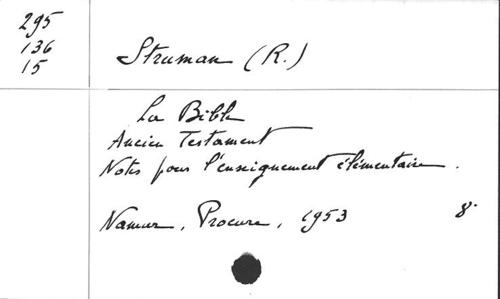 295
136
15
Struman (R.)
La Bible
Ancien Testament
Notes pour l'enseignement élémentaire.
Namur, Procure, 1953 8°